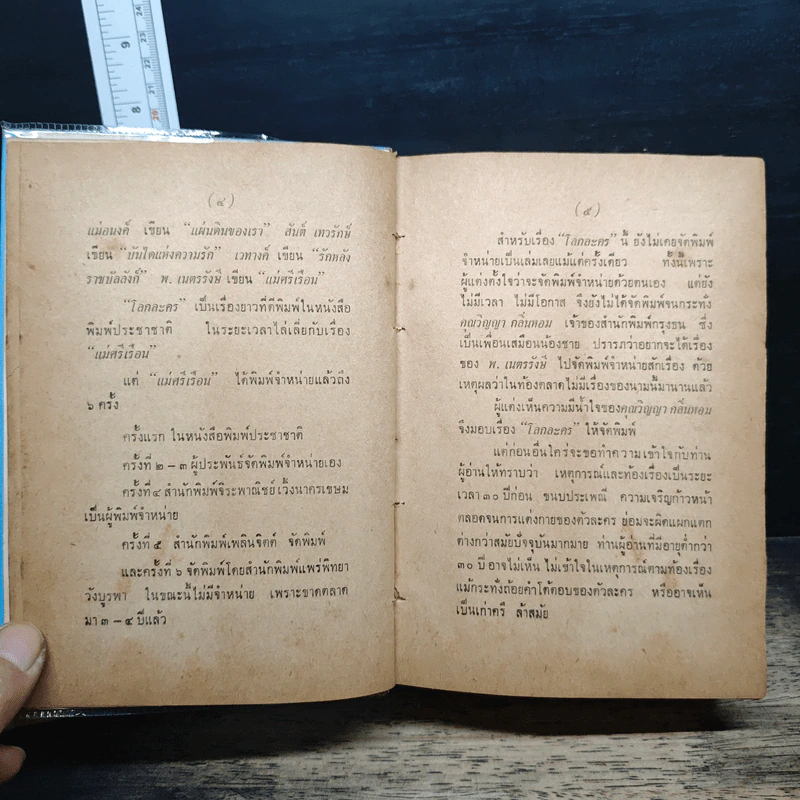 (๔)
แม่อนงค์ เขียน “แผ่นดินของเรา” สันต์ เทวรักษ์
เขียน “บันไดแห่งความรัก” เวทางค์ เขียน “รักหลัง
ราชบัลลังก์” พ. เนตรรังษี เขียน “แม่ศรีเรือน”
“โลกละคร” เป็นเรื่องยาวที่ตีพิมพ์ในหนังสือ
พิมพ์ประชาชาติ ในระยะเวลาไล่เลี่ยกับเรื่อง
“แม่ศรีเรือน”
แต่ “แม่ศรีเรือน” ได้พิมพ์จำหน่ายแล้วถึง
๖ ครั้ง
ครั้งแรก ในหนังสือพิมพ์ประชาชาติ
ครั้งที่ ๒ – ๓ ผู้ประพันธ์จัดพิมพ์จำหน่ายเอง
ครั้งที่ ๔ สำนักพิมพ์จิระพาณิชย์ เวิ้งนาครเขษม
เป็นผู้พิมพ์จำหน่าย
ครั้งที่ ๕ สำนักพิมพ์เพลินจิตต์ จัดพิมพ์
และครั้งที่ ๖ จัดพิมพ์โดยสำนักพิมพ์แพร่พิทยา
วังบูรพา ในขณะนี้ไม่มีจำหน่าย เพราะขาดตลาด
มา ๓ – ๔ ปีแล้ว
(๕)
สำหรับเรื่อง “โลกละคร” นี้ ยังไม่เคยจัดพิมพ์
จำหน่ายเป็นเล่มเลยแม้แต่ครั้งเดียว ทั้งนี้เพราะ
ผู้แต่งตั้งใจว่าจะจัดพิมพ์จำหน่ายด้วยตนเอง แต่ยัง
ไม่มีเวลา ไม่มีโอกาส จึงยังไม่ได้จัดพิมพ์จนกระทั่ง
คุณวิญญา กลิ่นหอม เจ้าของสำนักพิมพ์กรุงธน ซึ่ง
เป็นเพื่อนเสมือนน้องชาย ปรารภว่าอยากจะได้เรื่อง
ของ พ. เนตรรังษี ไปจัดพิมพ์จำหน่ายสักเรื่อง ด้วย
เหตุผลว่าในท้องตลาดไม่มีเรื่องของนามนี้มานานแล้ว
ผู้แต่งเห็นความมีน้ำใจของคุณวิญญา กลิ่นหอม
จึงมอบเรื่อง “โลกละคร” ให้จัดพิมพ์
แต่ก่อนอื่นใคร่จะขอทำความเข้าใจกับท่าน
ผู้อ่านให้ทราบว่า เหตุการณ์และท้องเรื่องเป็นระยะ
เวลา ๓๐ ปีก่อน ขนบประเพณี ความเจริญก้าวหน้า
ตลอดจนการแต่งกายของตัวละคร ย่อมจะผิดแผกแตก
ต่างกว่าสมัยปัจจุบันมากมาย ท่านผู้อ่านที่มีอายุต่ำกว่า
๓๐ ปี อาจไม่เห็น ไม่เข้าใจในเหตุการณ์ตามท้องเรื่อง
แม้กระทั่งถ้อยคำโต้ตอบของตัวละคร หรืออาจเห็น
เป็นเก่าครึ ล้าสมัย
9
8
24
23
22
21
20